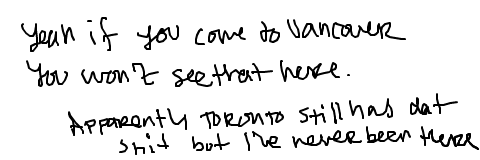 Yeah if you come to Vancouver
You won't see that here.
Apparently Toronto still has dat
shit but I've never been there